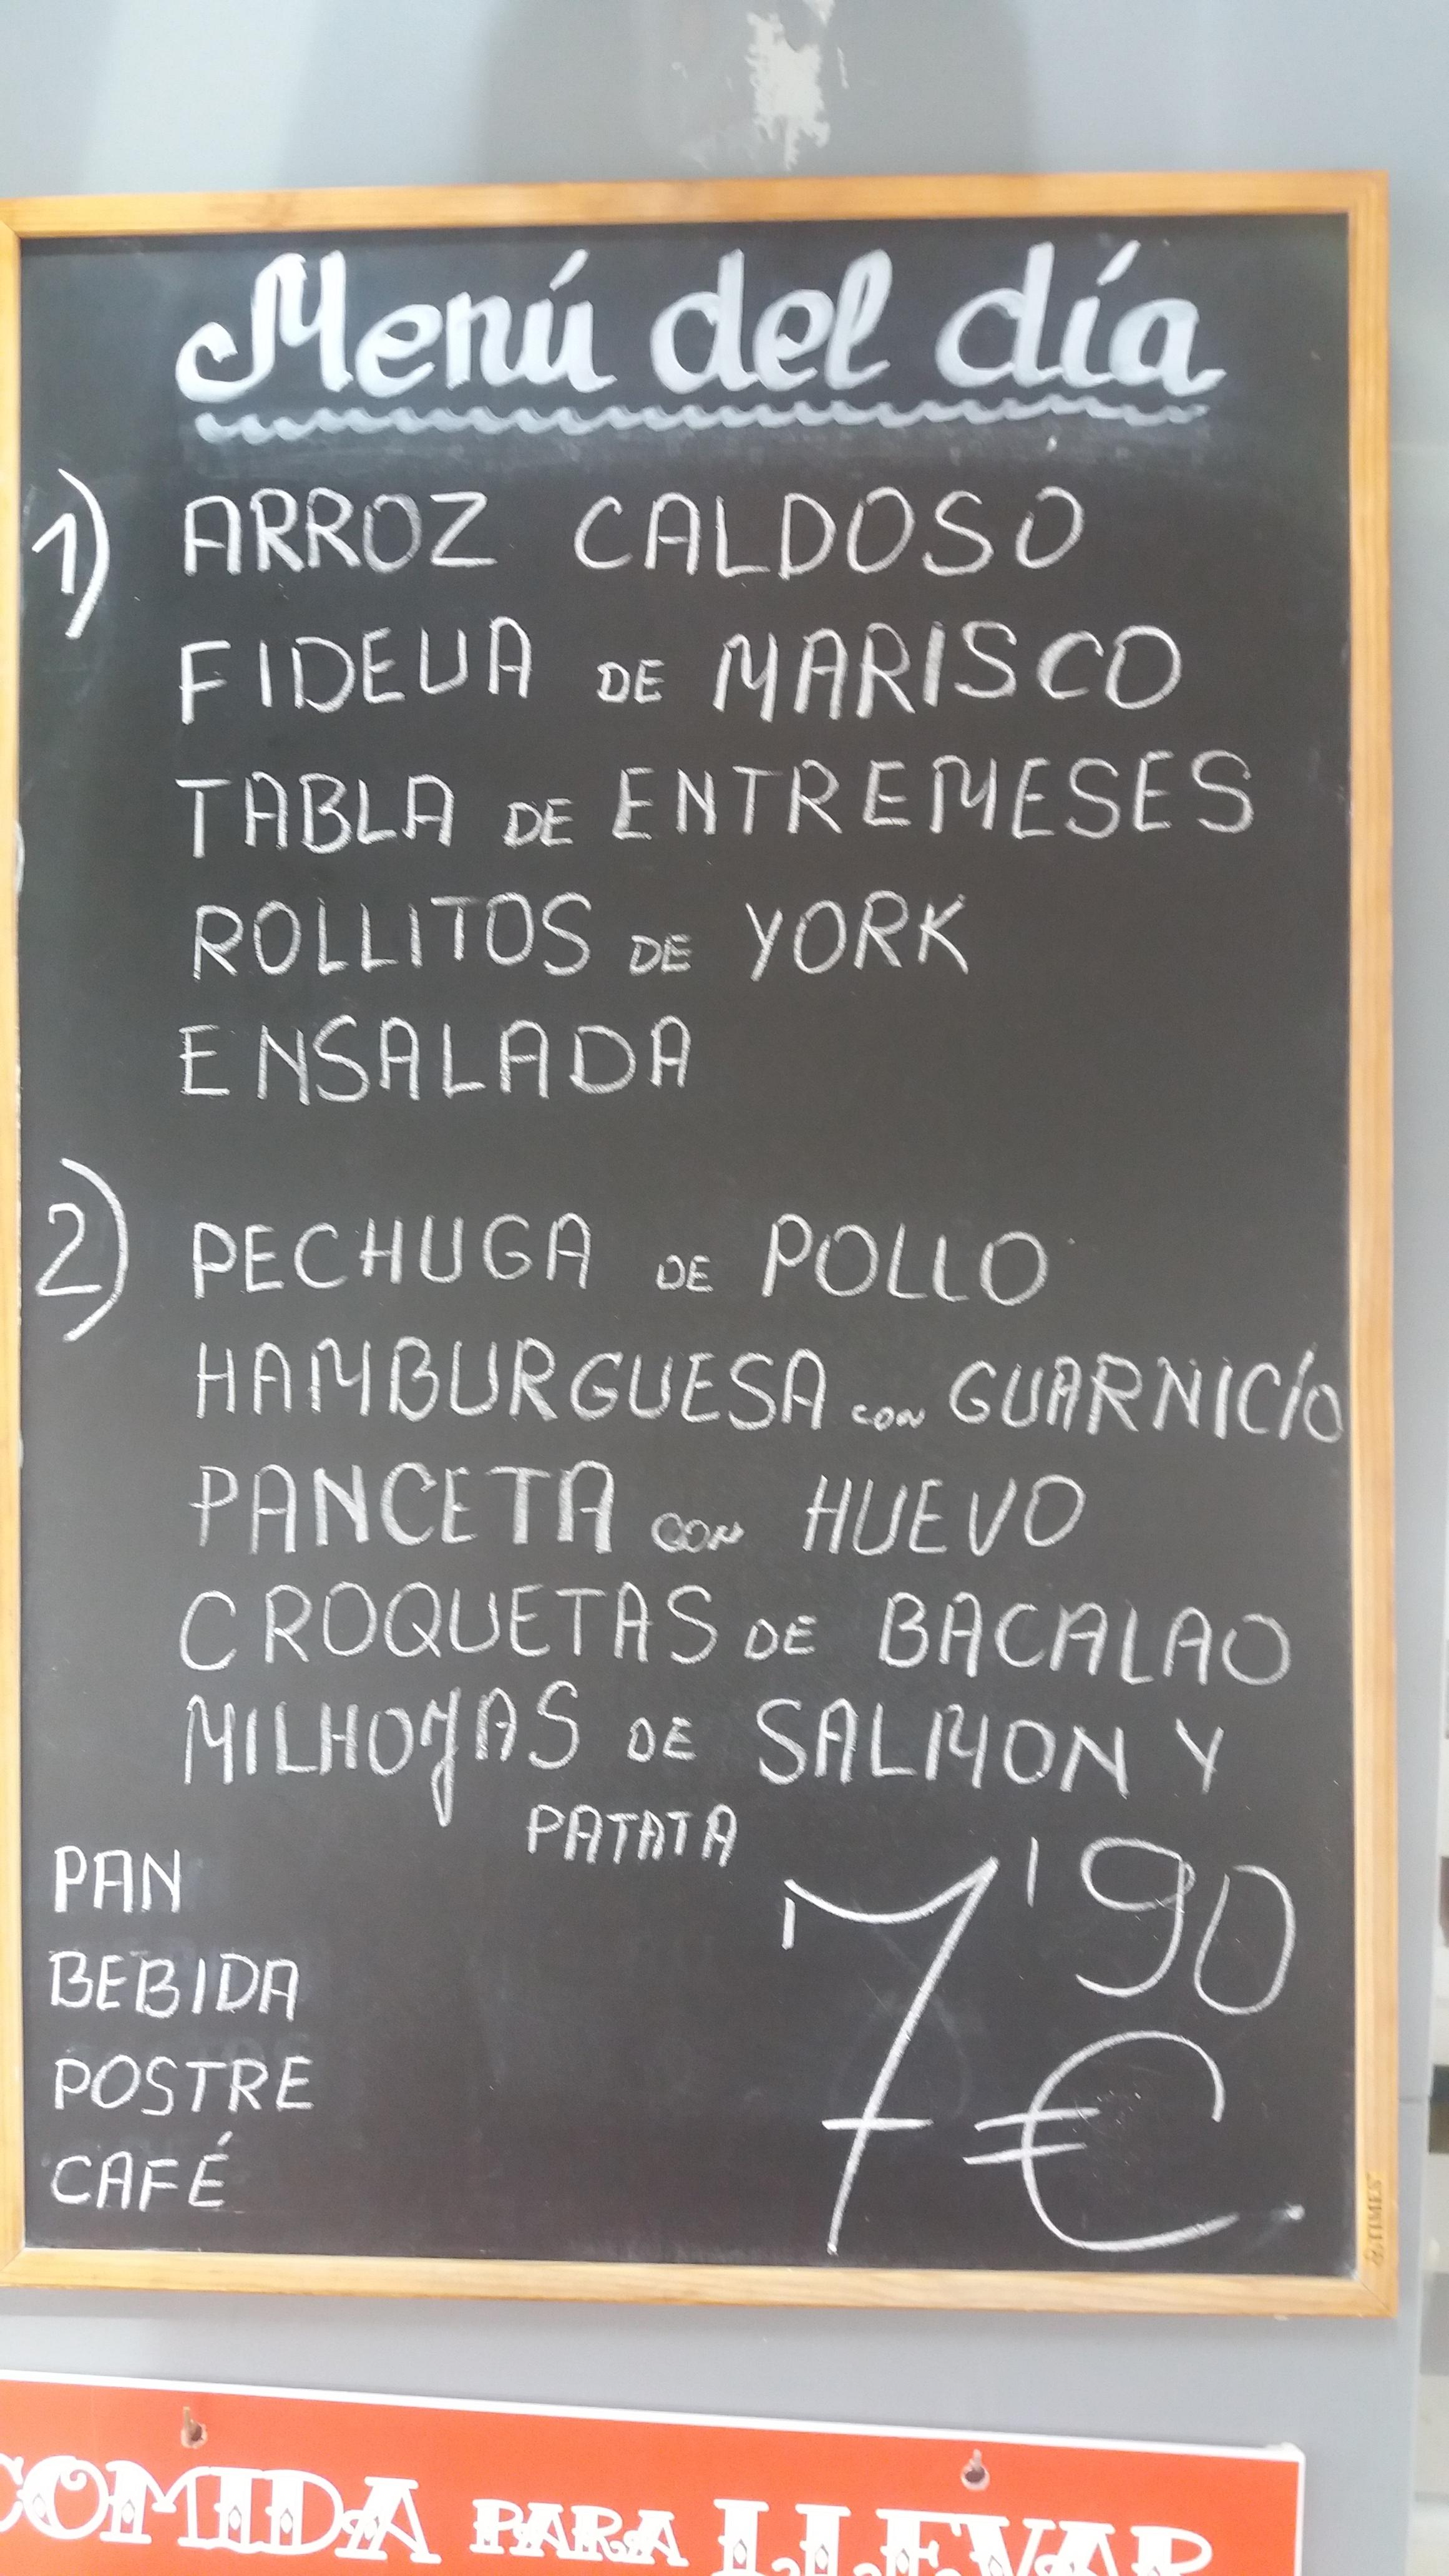 Menú del día
1) ARROZ CALDOSO
FIDEUA DE MARISCO
TABLA DE ENTREMESES
ROLLITOS DE YORK
ENSALADA
2) PECHUGA DE POLLO
HAMBURGUESA CON GUARNICIO
PANCETA CON HUEVO
CROQUETAS DE BACALAO
MILHOJAS DE SALMON Y
PATATA
PAN
BEBIDA
POSTRE
CAFÉ
7'90
€
COMIDA PARA LLEVAR